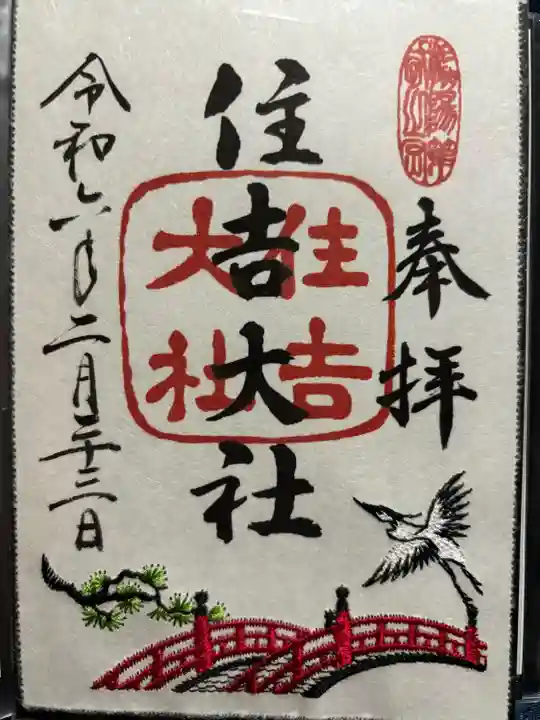 奉拝
住吉大社
住吉
大社
令和六年二月二十三日